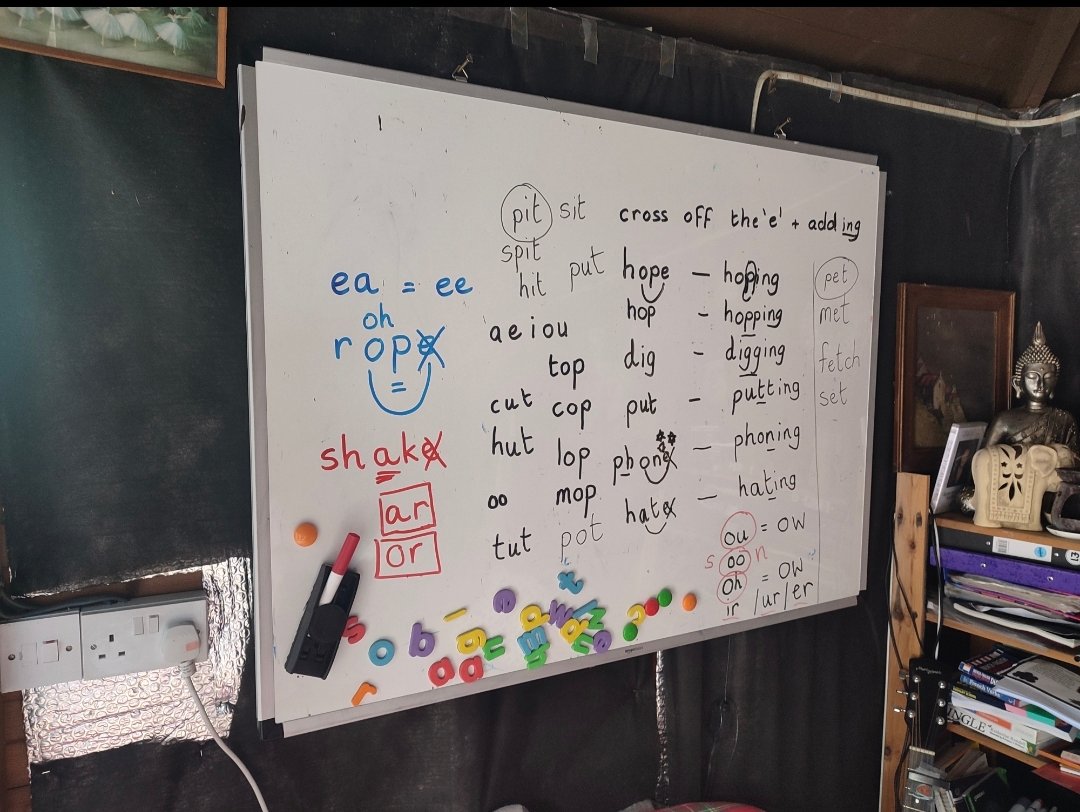 pit sit
spit
hit put
cross off the 'e' + adding
hope - hoping
hop - hopping
dig - digging
put - putting
phone - phoning
hate - hating
pet
met
fetch
set
ea = ee
oh
rope
=
shake
ar
or
a e i o u
top
cut cop
hut lop
oo mop
tut pot
ou = ow
s oo n
oh = ow
ir /ur/er
s o b g u a a r
e t w